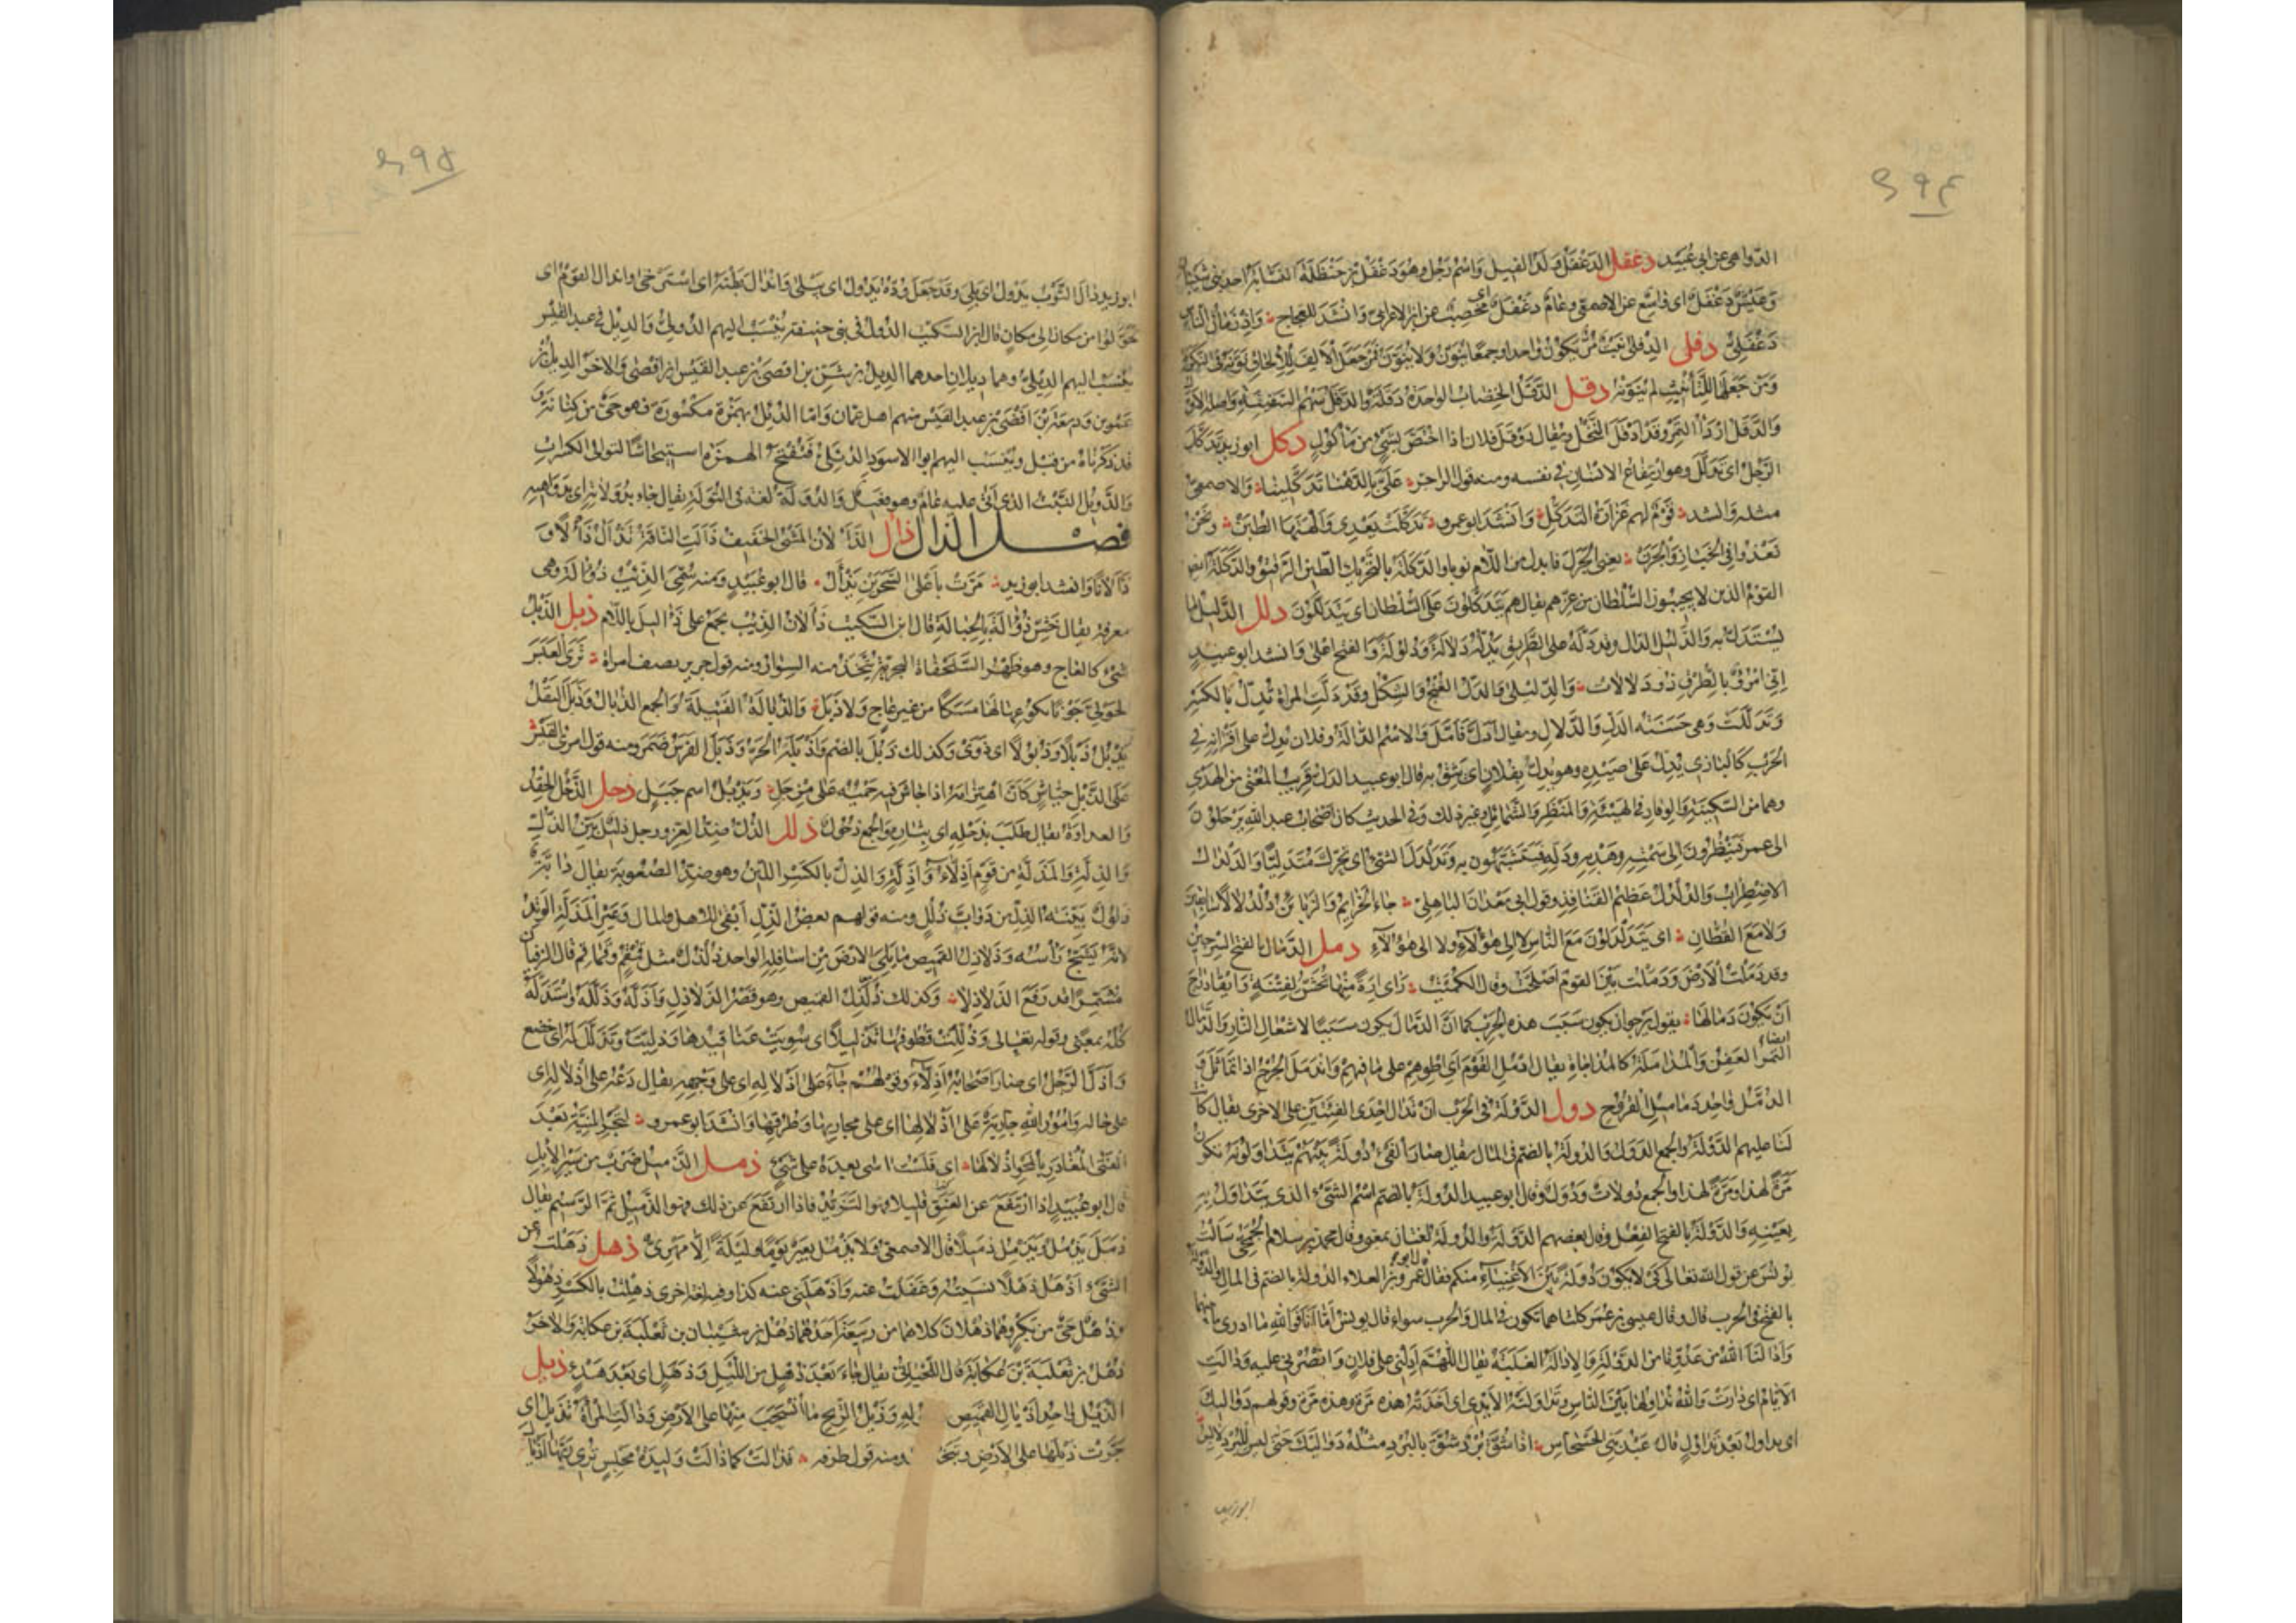 ٤٩٤
الدواهى عن ابى عبيد دغفل الدغفل ولد الفيل واسم رجل وهو دغفل بن حنظلة النسابة احد بنى شيبان
وعيش دغفل اى واسع عن الاصمعى وعام دغفل اى مخصب عن ابن الاعرابى وانشد للعجاج واذ زمان الناس
دغفلى دفلى الدفلى نبت مر يكون واحدا وجمعا ينون ولا ينون فمن جعل الالف للالحاق نونه فى النكرة
ومن جعلها للتأنيث لم ينونه دقل الدقل الخضاب الواحدة دقلة والدقل سهم السفينة واصله الاول
والدقل اردأ التمر وقد ادقل النخل ويقال دوقل فلان اذا اختص بشىء من مأكول دكل ابو زيد تدكل
الرجل اى تدلل وهو ارتفاع الانسان فى نفسه ومنه قول الراجز على بالدهنا تدكلينا والاصمعى
مثله وانشد قوم لهم عزازة التدكل وانشد ابو عمرو تدكلت بعدى والهتها الطبن ونحن
نعدو فى الخبار والجرن يعنى الجرل فابدل من اللام نونا والدكلة بالتحريك الطين الرقيق والدكلة ايضا
القوم الذين لا يجيبون السلطان من عزهم يقال هم يتدكلون على السلطان اى يتدللون دلل الدليل ما
يستدل به والدليل الدال وقد دله على الطريق يدله دلالة ودلولة والفتح اعلى وانشد ابو عبيد
انى امرؤ بالطرق ذو دلالات والدليلى والدل الغنج والشكل وقد دلت المراة تدل بالكسر
وتدللت وهى حسنة الدل والدلال ويقال ادل فامل والاسم الدالة وفلان يدل على اقرانه فى
الحرب كالبازى يدل على صيده وهو يدل بفلان اى يثق به قال ابو عبيد الدل قريب المعنى من الهدى
وهما من السكينة والوقار فى الهيئة والمنظر والشمائل وغير ذلك وفى الحديث كان اصحاب عبد الله يرحلون
الى عمر فينظرون الى سمته وهديه ودله فيتشبهون به وتدلدل الشىء اى تحرك متدليا والدلدال
الاضطراب والدلدل عظيم القنافذ وقول ابى معدان الباهلى جاء الحزايم والزبائن دلدلا لا سابقين
ولا مع القطان اى يتدلدلون مع الناس لا الى هؤلاء ولا الى هؤلاء دمل الدمال بالفتح السرجين
وقد دملت الارض ودملت بين القوم اصلحت وقال الكميت راى ارة منها تحش لفتنة وايقاد راج
ان يكون دمالها يقول يرجو ان يكون سبب هذه الحرب كما ان الدمال يكون سببا لاشعال النار والدمال ايضا
التمر العفن والمداملة كالمداجاة يقال ادمل القوم اى اطوهم على ما فيهم واندمل الجرح اذا تماثل و
الدمل واحد دماميل القروح دول الدولة فى الحرب ان تدال احدى الفئتين على الاخرى يقال كانت
لنا عليهم الدولة والجمع الدول والدولة بالضم فى المال يقال صار الفىء دولة بينهم يتداولونه تكون
مرة لهذا ومرة لهذا والجمع دولات ودول وقال ابو عبيد الدولة بالضم اسم الشىء الذى يتداول به
بعينه والدولة بالفتح الفعل وقال بعضهم الدولة والدولة لغتان بمعنى وقال محمد بن سلام الجمحى سالت
يونس عن قول الله تعالى كى لا يكون دولة بين الاغنياء منكم فقال قال ابو عمرو بن العلاء الدولة بالضم فى المال والدولة
بالفتح فى الحرب قال وقال عيسى بن عمر كلتاهما تكون فى المال والحرب سواء قال يونس اما انا فوالله ما ادرى ما بينهما
وادالنا الله من عدونا من الدولة والادالة الغلبة يقال اللهم ادلنى على فلان وانصرنى عليه ودالت
الايام اى دارت والله يداولها بين الناس وتداولته الايدى اى اخذته هذه مرة وهذه مرة وقولهم دواليك
اى مداولة بعد تداول قال عبد بنى الحسحاس اذا شق برد شق بالبرد مثله دواليك حتى ليس للبرد لابس
ابو زيد
٤٩٥
ابو زيد دال الثوب يدول اى بلى وقد جعل وده يدول اى يبلى واندال بطنه اى استرخى واندال القوم اى
تحولوا من مكان الى مكان قال ابن السكيت الدول فى بنى حنيفة ينسب اليهم الدولى والديل فى عبد القيس
ينسب اليهم الديلى وهما ديلان احدهما الديل بن شن بن افصى بن عبد القيس بن افصى والاخر الديل بن
عمرو بن وديعة بن افصى بن عبد القيس منهم اهل عمان واما الدئل بهمزة مكسورة فهو حى من كنانة و
قد ذكرناه من قبل وينسب اليهم ابو الاسود الدئلى فتفتح الهمزة استيحاشا لتوالى الكسرات
والدويل النبت الذى اتى عليه عام وهو فعيل والدولة لغة فى التولة يقال جاء بدولاته اى بدواهيه
فصل الذال ذأل الذألان المشى الخفيف ذألت الناقة تذأل ذألا و
ذألانا وانشد ابو زيد مرت باعلى السحرين تذأل قال ابو عبيد ومنه سمى الذئب ذؤالة وهى
معرفة يقال خش ذؤالة بالحبالة قال ابن السكيت ذألان الذئب يجمع على ذآليل باللام ذبل الذبل
شىء كالعاج وهو ظهر السلحفاة البحرية يتخذ منه السوار ومنه قول جرير يصف امراة ترى العبس
الحولى جونا بكوعها لها مسكا من غير عاج ولا ذبل والذبالة الفتيلة والجمع الذبال وذبل البقل
يذبل ذبلا وذبولا اى ذوى وكذلك ذبل بالضم واذبله الحر وذبل الفرس ضمر ومنه قول امرئ القيس
على الذبل جياش كان اهتزامه اذا جاش فيه حميه غلى مرجل ويذبل اسم جبل ذحل الذحل الحقد
والعداوة يقال طلب بذحله اى بثاره والجمع ذحول ذلل الذل ضد العز ورجل ذليل بين الذل
والذلة والمذلة من قوم اذلاء واذلة والذل بالكسر اللين وهو ضد الصعوبة يقال دابة
ذلول بينة الذل من دواب ذلل ومنه قولهم بعض الذل ابقى للاهل والمال وعير المذلة الوتد
لانه يشج رأسه وذلاذل القميص ما يلى الارض من اسافله الواحد ذلذل مثل قمقم وقماقم قال الزفيان
مشمرا قد رفع الذلاذلا وكذلك ذلذل القميص وهو قصر الذلاذل واذله وذلله واستذله
كله بمعنى وقوله تعالى وذللت قطوفها تذليلا اى سويت عناقيدها ودليت وتذلل له اى خضع
واذل الرجل اى صار اصحابه اذلاء وقولهم جاء على اذلاله اى على وجهه يقال دعه على اذلاله اى
على حاله وامور الله جارية على اذلالها اى على مجاريها وطرقها وانشد ابو عمرو لتجر المنية بعد
الفتى المغادر بالمحو اذلالها اى فلست اسى بعده على شىء ذمل الذميل ضرب من سير الابل
قال ابو عبيد اذا ارتفع عن العنق قليلا فهو التزيد فاذا ارتفع عن ذلك فهو الذميل ثم الرسيم يقال
ذمل يذمل ويذمل ذميلا قال الاصمعى ولا يذمل بعير يوما وليلة الا مهرى ذهل ذهلت عن
الشىء اذهل ذهلا نسيته وغفلت عنه واذهلنى عنه كذا وفيه لغة اخرى ذهلت بالكسر ذهولا
وذهل حى من بكر وهما ذهلان كلاهما من ربيعة احدهما ذهل بن شيبان بن ثعلبة بن عكابة والاخر
ذهل بن ثعلبة بن عكابة قال اللحيانى يقال جاء بعد ذهل من الليل وذهل اى بعد هدء ذيل
الذيل واحد اذيال القميص وذيل الريح ما انسحب منها على الارض وذالت المرأة تذيل اى
جرت ذيلها على الارض وتبخترت ومنه قول طرفة فذالت كما ذالت وليدة مجلس ترى ربها اذيال